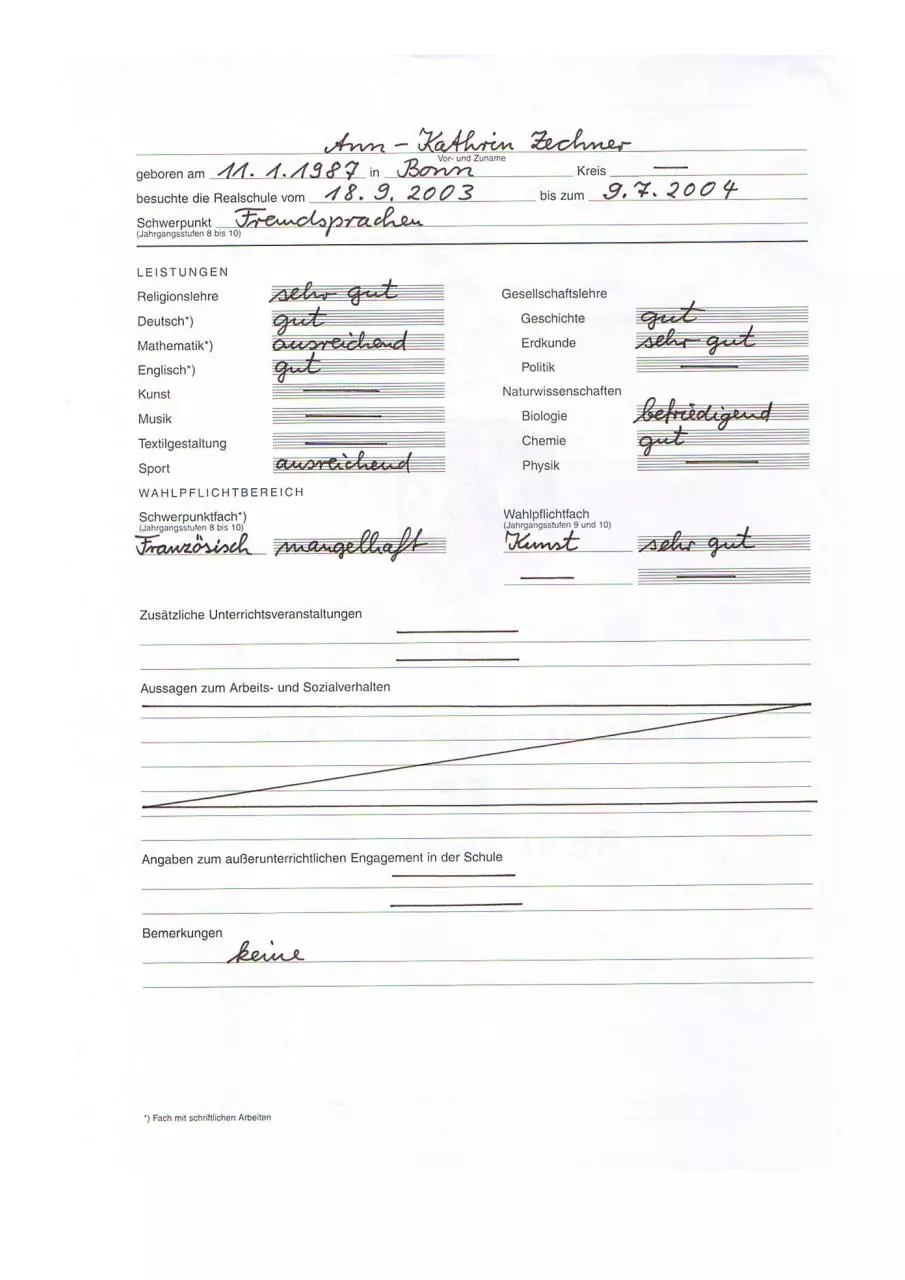 Ann - Kathrin Zechner
Vor- und Zuname
geboren am 11. 1. 1987 in Bonn Kreis —
besuchte die Realschule vom 18. 9. 2003 bis zum 9. 7. 2004
Schwerpunkt Fremdsprachen
(Jahrgangsstufen 8 bis 10)
LEISTUNGEN
Religionslehre sehr gut
Deutsch*) gut
Mathematik*) ausreichend
Englisch*) gut
Kunst —
Musik —
Textilgestaltung —
Sport ausreichend
Gesellschaftslehre
Geschichte gut
Erdkunde sehr gut
Politik —
Naturwissenschaften
Biologie befriedigend
Chemie gut
Physik —
WAHLPFLICHTBEREICH
Schwerpunktfach*)
(Jahrgangsstufen 8 bis 10)
Französisch mangelhaft
Wahlpflichtfach
(Jahrgangsstufen 9 und 10)
Kunst sehr gut
— —
Zusätzliche Unterrichtsveranstaltungen
—
—
Aussagen zum Arbeits- und Sozialverhalten
Angaben zum außerunterrichtlichen Engagement in der Schule
—
—
Bemerkungen
keine
*) Fach mit schriftlichen Arbeiten